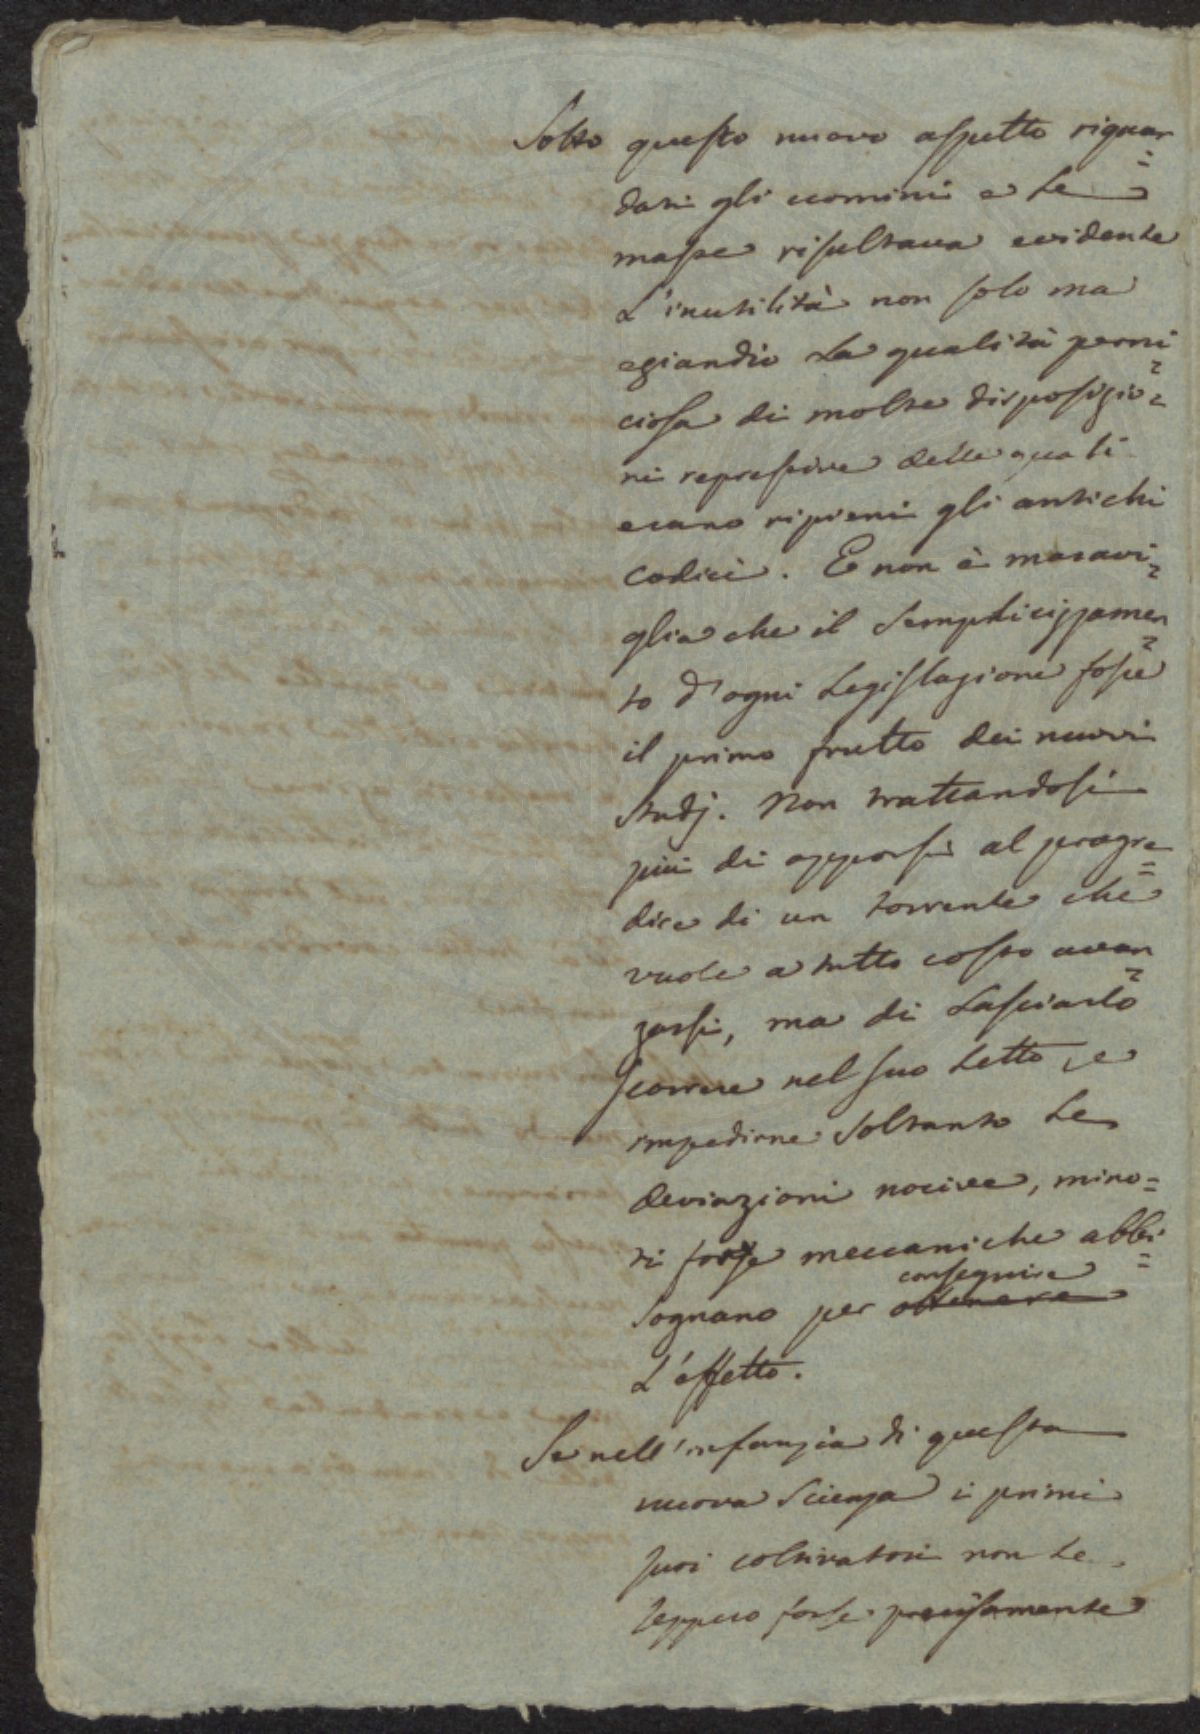 Sotto questo nuovo aspetto riguar=
dati gli uomini e le
masse risultava evidente
l'inutilità non solo ma
eziandio la qualità perni=
ciosa di molte disposizio=
ni repressive delle quali
erano ripieni gli antichi
codici. E non è maravi=
glia che il semplicizzamen=
to d'ogni legislazione fosse
il primo frutto dei nuovi
studj. Non trattandosi
più di opporsi al progre=
dire di un torrente che
vuole a tutto costo avan=
zarsi, ma di lasciarlo
scorrere nel suo letto, e
impedirne soltanto le
deviazioni nocive, mino=
ri forze meccaniche abbi=
sognano per ottenere conseguire
l'effetto.
Se nell'infanzia di questa
nuova scienza i primi
suoi coltivatori non le
seppero forse precisamente